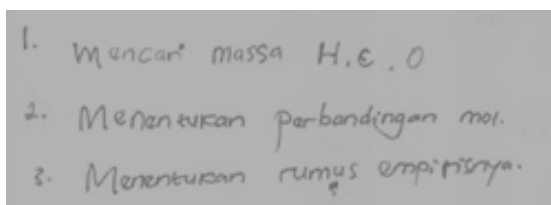 1. Mencari massa H.C.O
2. Menentukan perbandingan mol.
3. Menentukan rumus empirisnya.